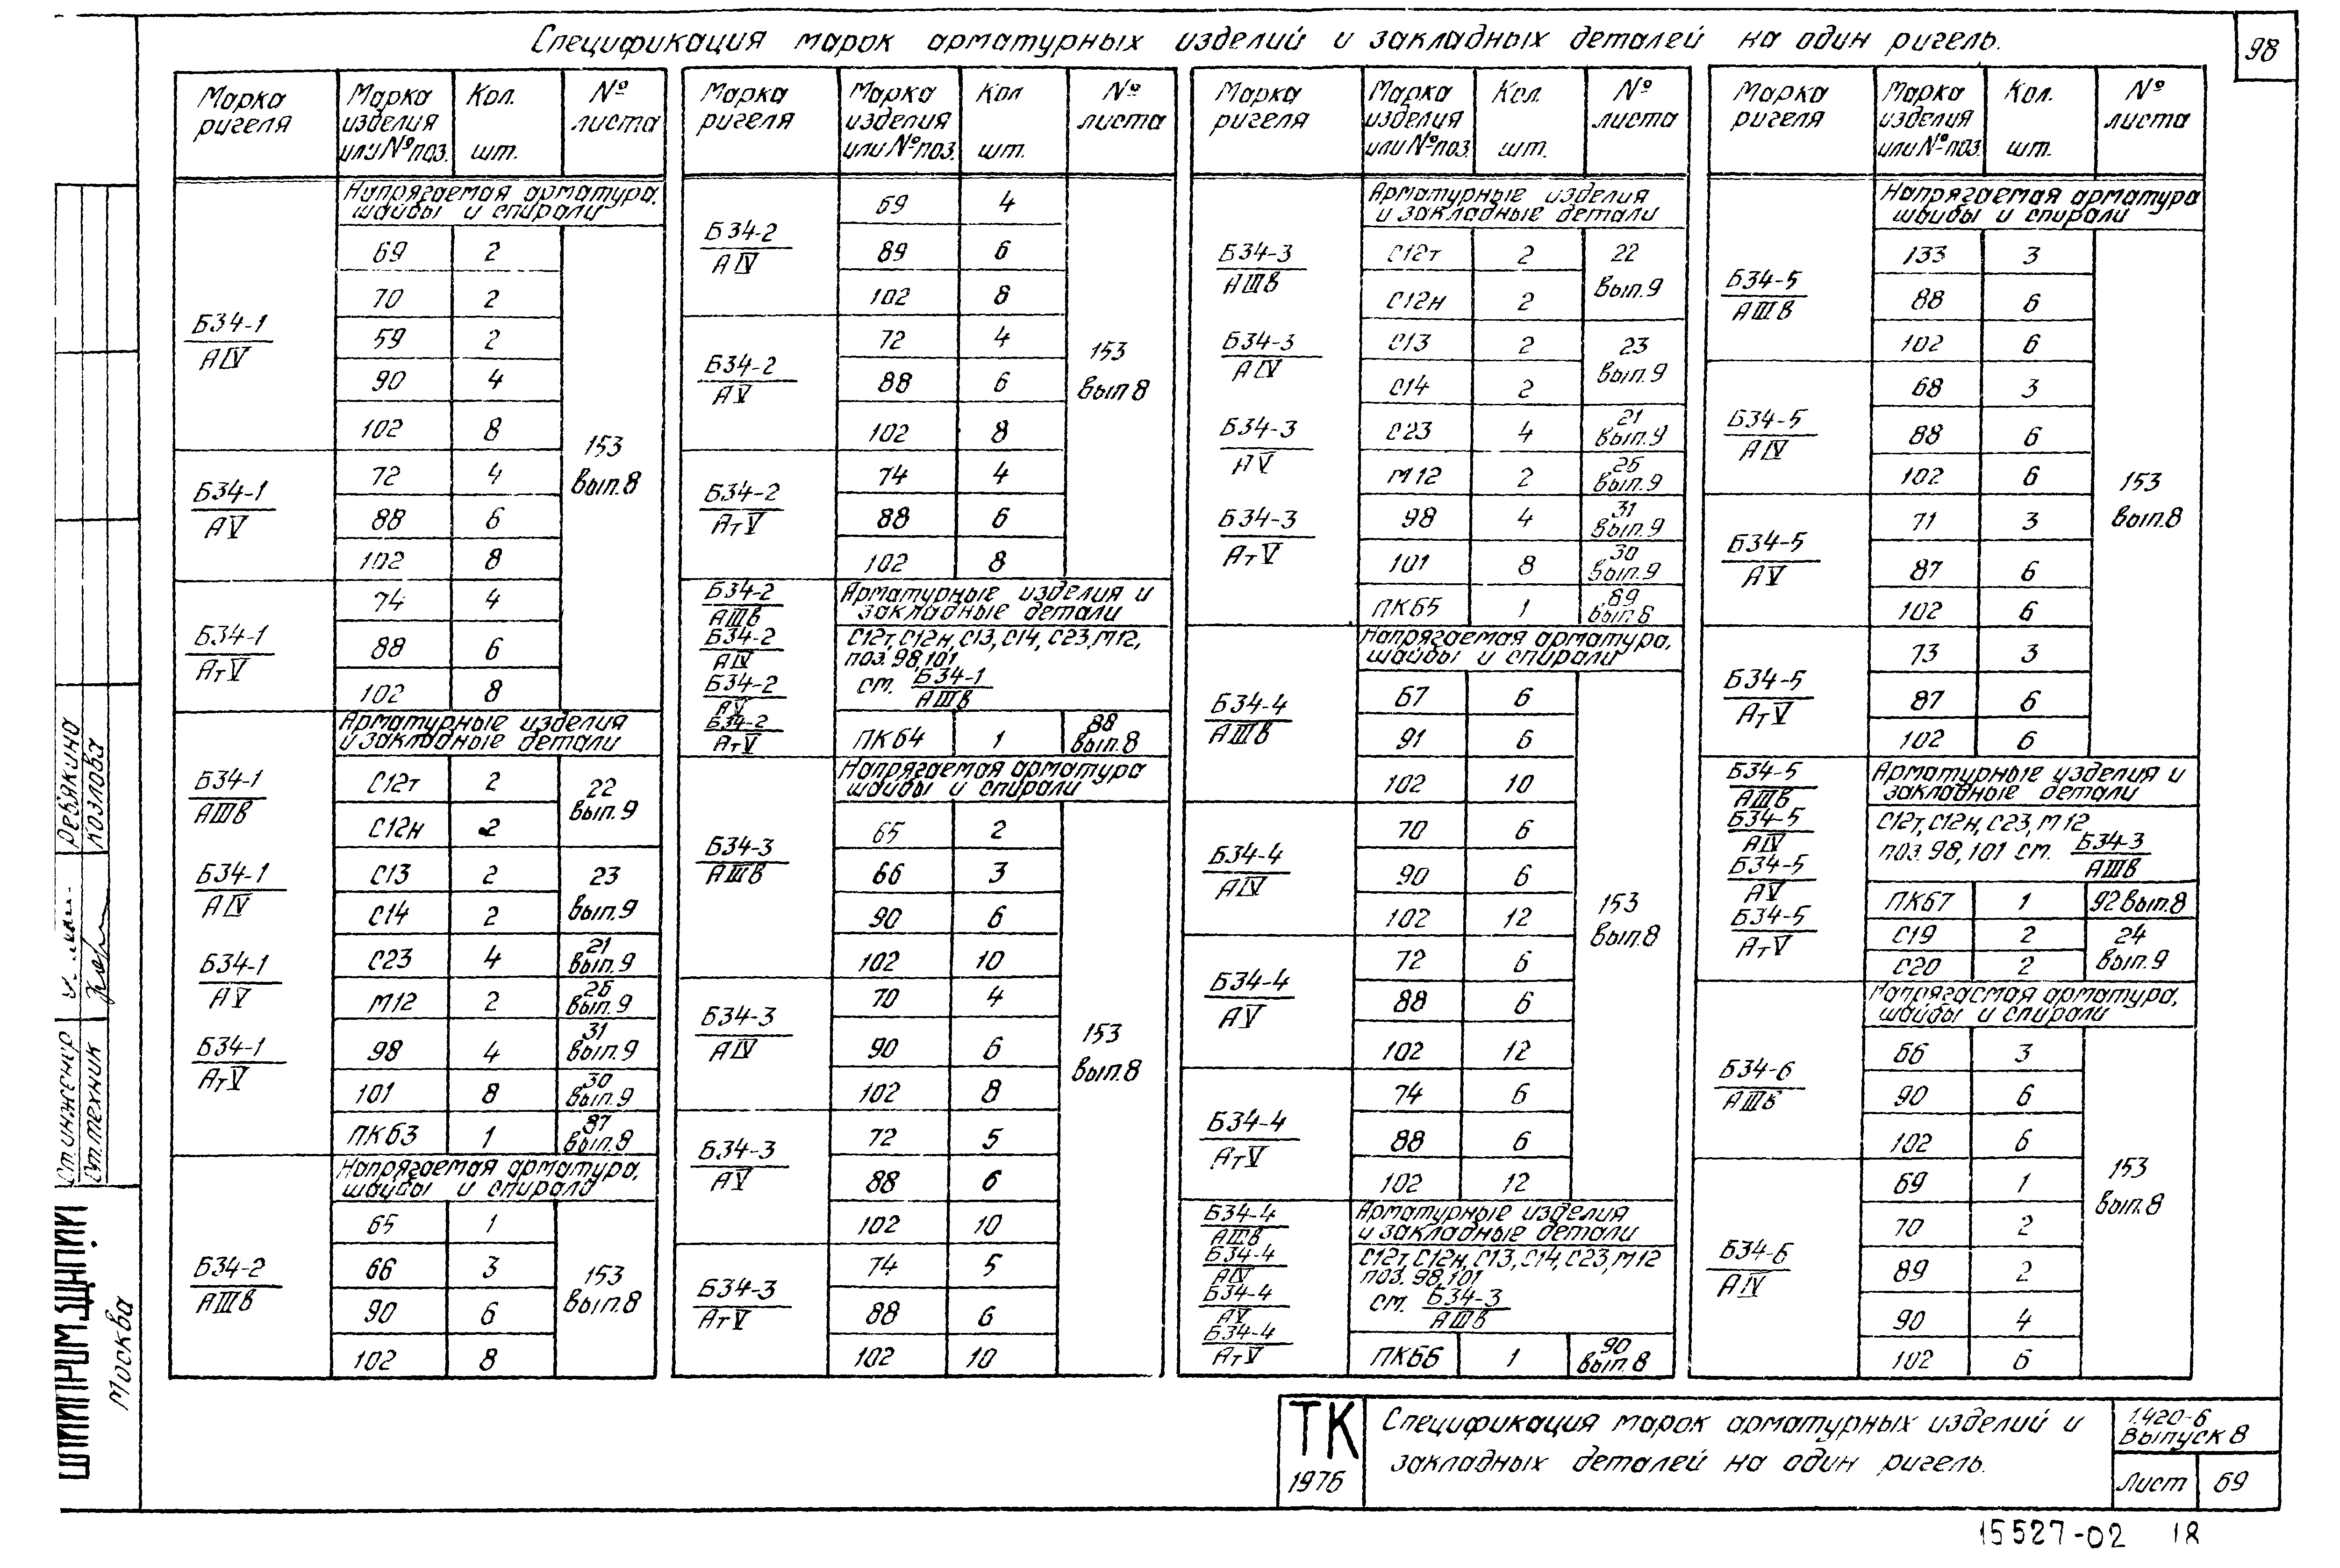 Спецификация марок арматурных изделий и закладных деталей на один ригель.
98
Марка ригеля | Марка изделия или № поз. | Кол. шт. | № листа
Напрягаемая арматура, шайбы и спирали
Б34-1 / АIV
69 | 2
70 | 2
59 | 2
90 | 4
102 | 8
Б34-1 / АV
72 | 4
88 | 6
102 | 8
Б34-1 / АтV
74 | 4
88 | 6
102 | 8
153 вып.8
Арматурные изделия и закладные детали
Б34-1 / АIIIв
Б34-1 / АIV
Б34-1 / АV
Б34-1 / АтV
С12т | 2
С12н | 2
22 вып.9
С13 | 2
С14 | 2
23 вып.9
С23 | 4 | 21 вып.9
М12 | 2 | 26 вып.9
98 | 4 | 31 вып.9
101 | 8 | 30 вып.9
ПК63 | 1 | 87 вып.8
Напрягаемая арматура, шайбы и спирали
Б34-2 / АIIIв
65 | 1
66 | 3
90 | 6
102 | 8
153 вып.8
Марка ригеля | Марка изделия или № поз. | Кол шт. | № листа
Б34-2 / АIV
69 | 4
89 | 6
102 | 8
Б34-2 / АV
72 | 4
88 | 6
102 | 8
Б34-2 / АтV
74 | 4
88 | 6
102 | 8
153 вып 8
Б34-2 / АIIIв
Б34-2 / АIV
Б34-2 / АV
Б34-2 / АтV
Арматурные изделия и закладные детали
С12т, С12н, С13, С14, С23, М12,
поз. 98, 101
см. Б34-1 / АIIIв
ПК64 | 1 | 88 вып.8
Напрягаемая арматура шайбы и спирали
Б34-3 / АIIIв
65 | 2
66 | 3
90 | 6
102 | 10
Б34-3 / АIV
70 | 4
90 | 6
102 | 8
Б34-3 / АV
72 | 5
88 | 6
102 | 10
Б34-3 / АтV
74 | 5
88 | 6
102 | 10
153 вып.8
Марка ригеля | Марка изделия или № поз. | Кол. шт. | № листа
Арматурные изделия и закладные детали
Б34-3 / АIIIв
Б34-3 / АIV
Б34-3 / АV
Б34-3 / АтV
С12т | 2
С12н | 2
22 вып.9
С13 | 2
С14 | 2
23 вып.9
С23 | 4 | 21 вып.9
М12 | 2 | 26 вып.9
98 | 4 | 31 вып.9
101 | 8 | 30 вып.9
ПК65 | 1 | 89 вып.8
Напрягаемая арматура, шайбы и спирали
Б34-4 / АIIIв
67 | 6
91 | 6
102 | 10
Б34-4 / АIV
70 | 6
90 | 6
102 | 12
Б34-4 / АV
72 | 6
88 | 6
102 | 12
Б34-4 / АтV
74 | 6
88 | 6
102 | 12
153 вып.8
Б34-4 / АIIIв
Б34-4 / АIV
Б34-4 / АV
Б34-4 / АтV
Арматурные изделия и закладные детали
С12т, С12н, С13, С14, С23, М12
поз. 98, 101
см. Б34-3 / АIIIв
ПК66 | 1 | 90 вып.8
Марка ригеля | Марка изделия или № поз. | Кол. шт. | № листа
Напрягаемая арматура шайбы и спирали
Б34-5 / АIIIв
133 | 3
88 | 6
102 | 6
Б34-5 / АIV
68 | 3
88 | 6
102 | 6
Б34-5 / АV
71 | 3
87 | 6
102 | 6
Б34-5 / АтV
73 | 3
87 | 6
102 | 6
153 вып.8
Б34-5 / АIIIв
Б34-5 / АIV
Б34-5 / АV
Б34-5 / АтV
Арматурные изделия и закладные детали
С12т, С12н, С23, М12
поз. 98, 101 см. Б34-3 / АIIIв
ПК67 | 1 | 92 вып.8
С19 | 2
С20 | 2
24 вып.9
Напрягаемая арматура, шайбы и спирали
Б34-6 / АIIIв
66 | 3
90 | 6
102 | 6
Б34-6 / АIV
69 | 1
70 | 2
89 | 2
90 | 4
102 | 6
153 вып.8
Ст. инженер Ревякина
Ст. техник Козлова
Москва
ТК
1976
Спецификация марок арматурных изделий и
закладных деталей на один ригель.
1.420-6
Выпуск 8
Лист 69
15527-02 18